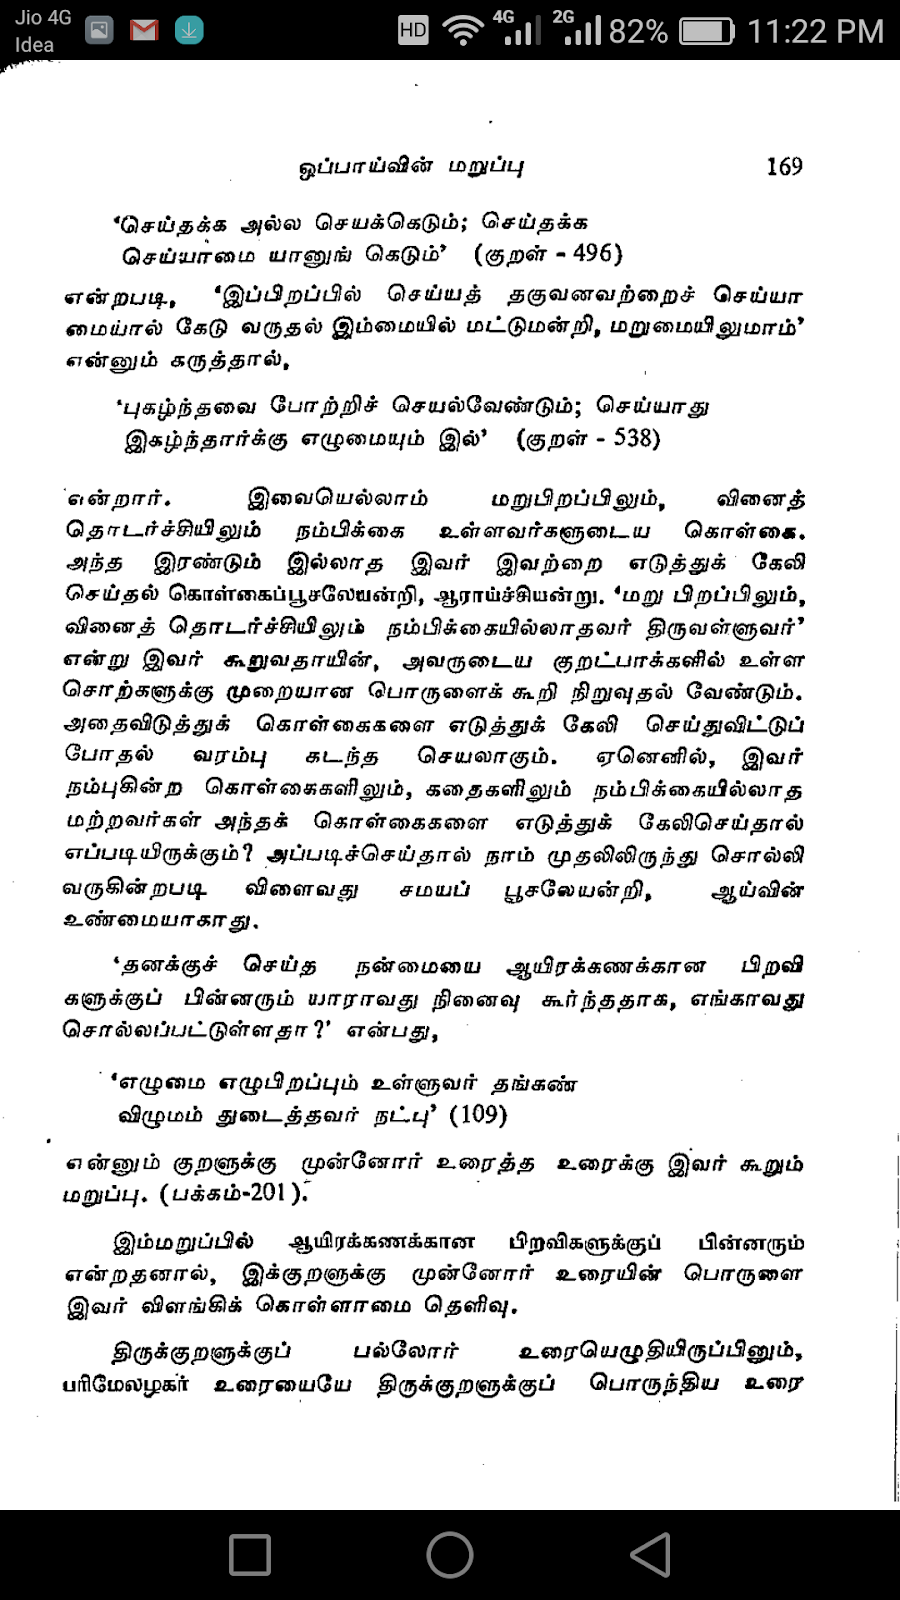 Jio 4G
Idea
HD 4G 2G 82% 11:22 PM
ஒப்பாய்வின் மறுப்பு 169
‘செய்தக்க அல்ல செயக்கெடும்; செய்தக்க
செய்யாமை யானுங் கெடும்’ (குறள் - 496)
என்றபடி, ‘இப்பிறப்பில் செய்யத் தகுவனவற்றைச் செய்யா
மையால் கேடு வருதல் இம்மையில் மட்டுமன்றி, மறுமையிலுமாம்’
என்னும் கருத்தால்,
‘புகழ்ந்தவை போற்றிச் செயல்வேண்டும்; செய்யாது
இகழ்ந்தார்க்கு எழுமையும் இல்’ (குறள் - 538)
என்றார். இவையெல்லாம் மறுபிறப்பிலும், வினைத்
தொடர்ச்சியிலும் நம்பிக்கை உள்ளவர்களுடைய கொள்கை.
அந்த இரண்டும் இல்லாத இவர் இவற்றை எடுத்துக் கேலி
செய்தல் கொள்கைப்பூசலேயன்றி, ஆராய்ச்சியன்று. ‘மறு பிறப்பிலும்,
வினைத் தொடர்ச்சியிலும் நம்பிக்கையில்லாதவர் திருவள்ளுவர்’
என்று இவர் கூறுவதாயின், அவருடைய குறட்பாக்களில் உள்ள
சொற்களுக்கு முறையான பொருளைக் கூறி நிறுவுதல் வேண்டும்.
அதைவிடுத்துக் கொள்கைகளை எடுத்துக் கேலி செய்துவிட்டுப்
போதல் வரம்பு கடந்த செயலாகும். ஏனெனில், இவர்
நம்புகின்ற கொள்கைகளிலும், கதைகளிலும் நம்பிக்கையில்லாத
மற்றவர்கள் அந்தக் கொள்கைகளை எடுத்துக் கேலிசெய்தால்
எப்படியிருக்கும்? அப்படிச்செய்தால் நாம் முதலிலிருந்து சொல்லி
வருகின்றபடி விளைவது சமயப் பூசலேயன்றி, ஆய்வின்
உண்மையாகாது.
‘தனக்குச் செய்த நன்மையை ஆயிரக்கணக்கான பிறவி
களுக்குப் பின்னரும் யாராவது நினைவு கூர்ந்ததாக, எங்காவது
சொல்லப்பட்டுள்ளதா?’ என்பது,
‘எழுமை எழுபிறப்பும் உள்ளுவர் தங்கண்
விழுமம் துடைத்தவர் நட்பு’ (109)
என்னும் குறளுக்கு முன்னோர் உரைத்த உரைக்கு இவர் கூறும்
மறுப்பு. (பக்கம்-201).
இம்மறுப்பில் ஆயிரக்கணக்கான பிறவிகளுக்குப் பின்னரும்
என்றதனால், இக்குறளுக்கு முன்னோர் உரையின் பொருளை
இவர் விளங்கிக் கொள்ளாமை தெளிவு.
திருக்குறளுக்குப் பல்லோர் உரையெழுதியிருப்பினும்,
பரிமேலழகர் உரையையே திருக்குறளுக்குப் பொருந்திய உரை